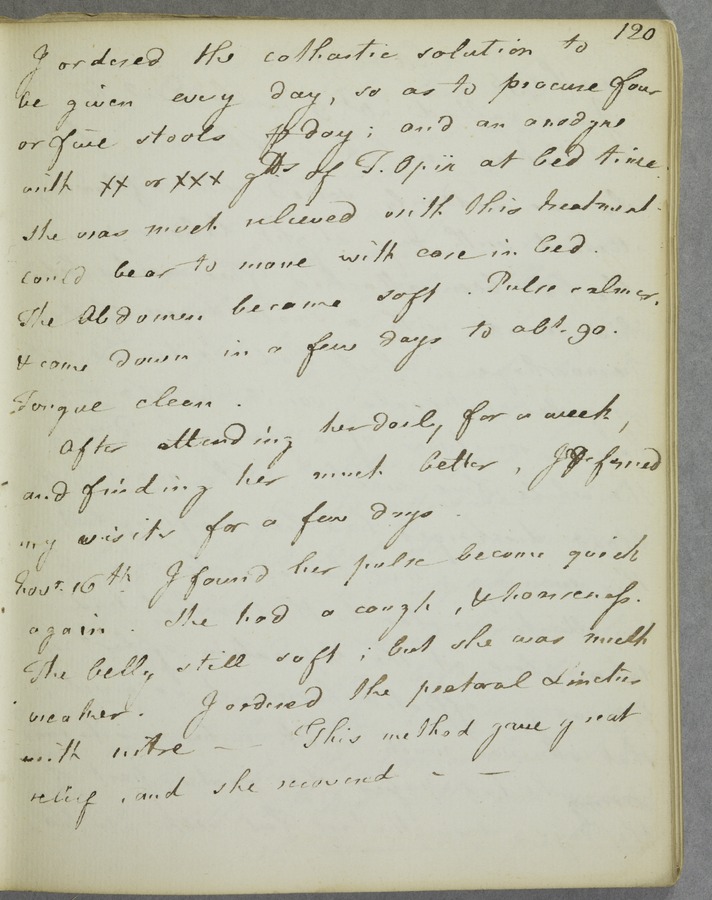 120
I ordered the cathartic solution to
be given every day, so as to procure four
or five stools ⅌ day; and an anodyne
with XX or XXX gtts of T. Opii at bed time.
She was much relieved with this treatment.
could bear to move with care in bed.
The Abdomen became soft. Pulse calmer,
& came down in a few days to abt. 90.
Tongue clean.
After attending her daily for a week,
and finding her much better, I
my visits for a few days.
Novr. 16th. I found her pulse become quick
again. She had a cough, & hoarseness.
The belly still soft; but she was much
weaker. I ordered the pectoral Linctus
with nitre — This method gave great
relief, and she recovered - —